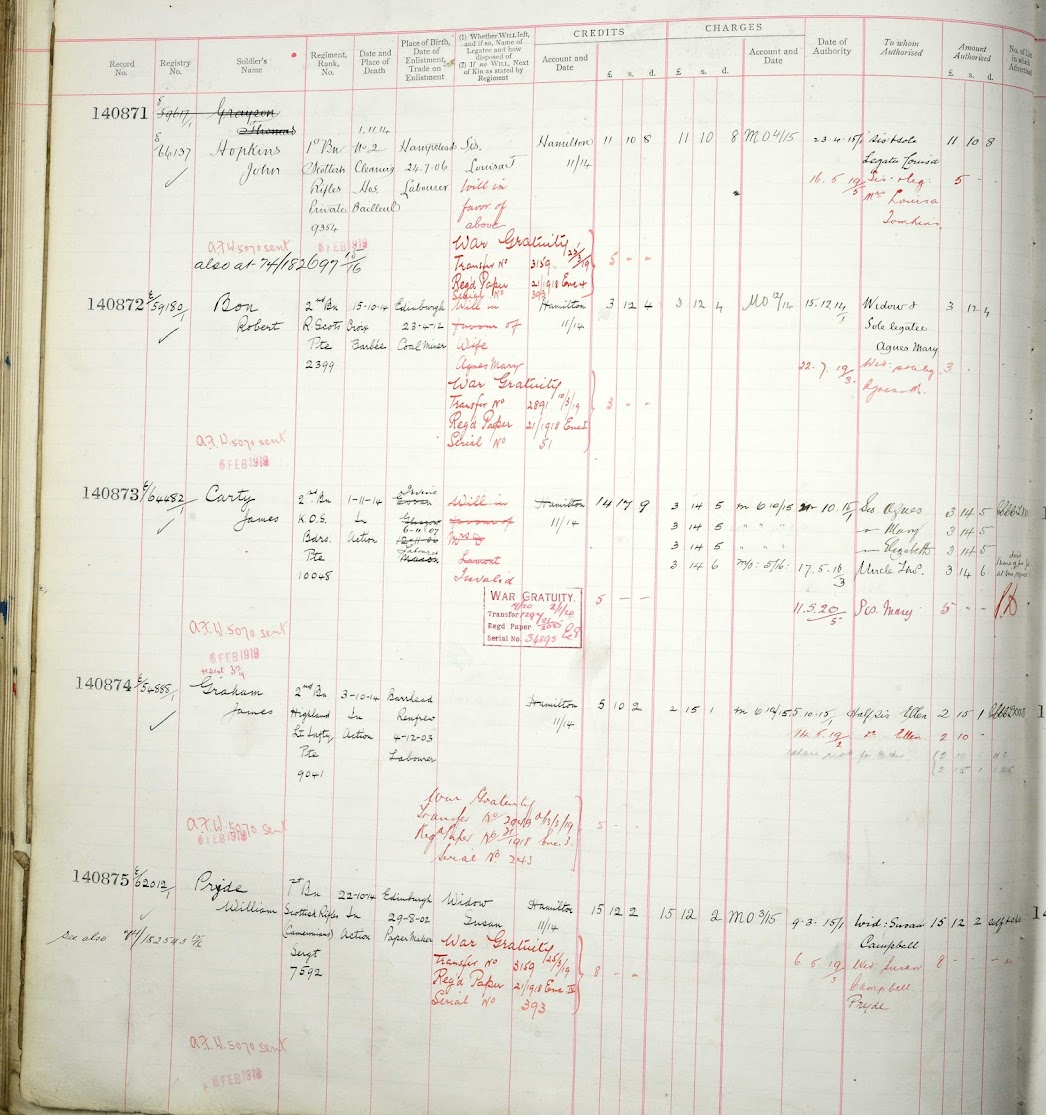 CREDITS
CHARGES
Record No.
Registry No.
Soldier's Name
Regiment, Rank, No.
Date and Place of Death
Place of Birth, Date of Enlistment, Trade on Enlistment
(1) Whether WILL left, and if so, Name of Legatee and how disposed of
(2) If no WILL, Next of Kin as stated by Regiment
Account and Date
£ s. d.
£ s. d.
Account and Date
Date of Authority
To whom Authorised
Amount Authorised
£ s. d.
No. of List in which Advertised
140871
E/59617/1 Grayson
Thomas
E/66137 Hopkins
John
1st Bn
Scottish
Rifles
Private
9354
1.11.14
No. 2
Clearing
Hos.
Bailleul
Hampstead
24-7-06
Labourer
Sis.
Louisa
Will in
favor of
above
Hamilton
11/14
11 10 8
11 10 8
MO 4/15
23-4-15/1
Sis & Sole
Legatee Louisa
11 10 8
16.6.19/3
Sis. & leg:
Mrs Louisa
Tomkins
5 - -
War Gratuity
Transfer No 3159 25/3/19
Regd Paper 21/1918 Enc 4
Serial No 393
5 - -
A.F.W. 5070 sent
6 FEB 1919
also at 74/182697 15/16
140872
E/59180/1 Bon
Robert
2nd Bn
R. Scots
Pte
2399
15-10-14
Croix
Barbée
Edinburgh
23-4-12
Coal Miner
Will in
favour of
Wife
Agnes Mary
Hamilton
11/14
3 12 4
3 12 4
MO 12/14
15.12.14/1
Widow &
Sole legatee
Agnes Mary
3 12 4
22.7.19/3
Agnes M.
3 -
War Gratuity
Transfer No 2891 10/3/19
Regd Paper 21/1918 Enc I
Serial No 51
3 - -
A.F.W. 5070 sent
6 FEB 1919
140873
E/64482/1 Carty
James
2nd Bn
K.O.S.
Bdrs.
Pte
10048
1-11-14
In
Action
Irvine
Glasgow
6-11-07
Labourer
Mason
Will in
favour of
Mrs
Lamont
Invalid
Hamilton
11/14
14 17 9
3 14 5 m 6 10/15
3 14 5 " " "
3 14 5 " " "
3 14 6 M/O: 5/16:
10.15/1 Sis Agnes 3 14 5
" Mary 3 14 5
" Elizabeth 3 14 5
17.5.16/3 Uncle Thos. 3 14 6
WAR GRATUITY.
Transfer 1297 2/1/20
Regd Paper
Serial No. 36895
5 - -
11.5.20/5 Sis. Mary 5 - -
A.F.W. 5070 sent
6 FEB 1919
140874
E/54888/1 Graham
James
2nd Bn
Highland
Lt. Infty
Pte
9041
3-10-14
In
Action
Barrhead
Renfrew
4-12-03
Labourer
Hamilton
11/14
5 10 2
2 15 1
m 6 10/15
5-10-15/1
Half Sis Ellen 2 15 1
14.6.19/2 do Ellen. 2 10 -
War Gratuity
Transfer No 2949 13/3/19
Regd Paper No 21/1918 Enc. 3.
Serial No 243
5 - -
A.F.W. 5070 sent
6 FEB 1919
140875
E/62012/1 Pryde
William
1st Bn
Scottish Rifles
(Cameronians)
Sergt
7592
22-10-14
In
Action
Edinburgh
29-8-02
Paper Maker
Widow
Susan
Hamilton
11/14
15 12 2
15 12 2
MO 3/15
9-3-15/1
Wid: Susan
Campbell
15 12 2
6.6.19/3
Wid: Susan
Campbell
Pryde
8 - -
War Gratuity
Transfer No 3159 25/3/19
Regd Paper 21/1918 Enc IV
Serial No 393
8 - -
See also
A.F.W. 5070 sent
6 FEB 1919